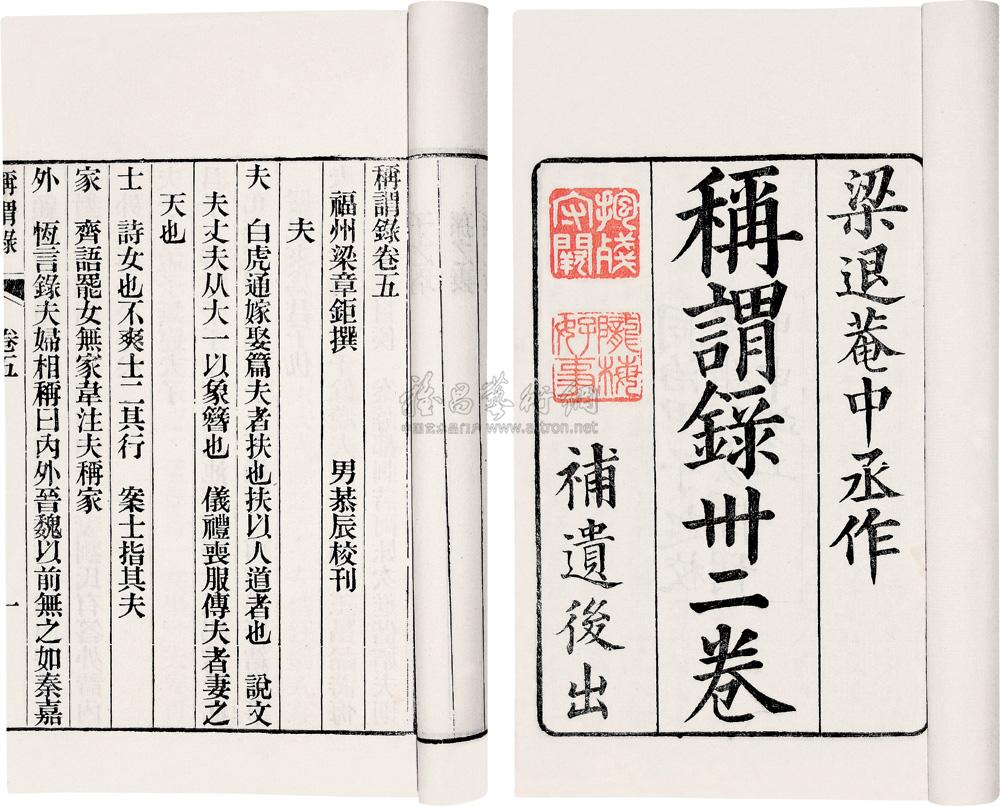 梁退菴中丞作
稱謂錄卅二卷
補遺後出
抱殘守闕
好事
稱謂錄卷五
福州梁章鉅撰 男恭辰校刊
夫
夫 白虎通嫁娶篇夫者扶也扶以人道者也 說文
夫丈夫从大一以象簪也 儀禮喪服傳夫者妻之
天也
士 詩女也不爽士二其行 案士指其夫
家 齊語罷女無家韋注夫稱家
外 恆言錄夫婦相稱曰內外晉魏以前無之如秦嘉
稱謂錄 卷五 一
www.artron.net